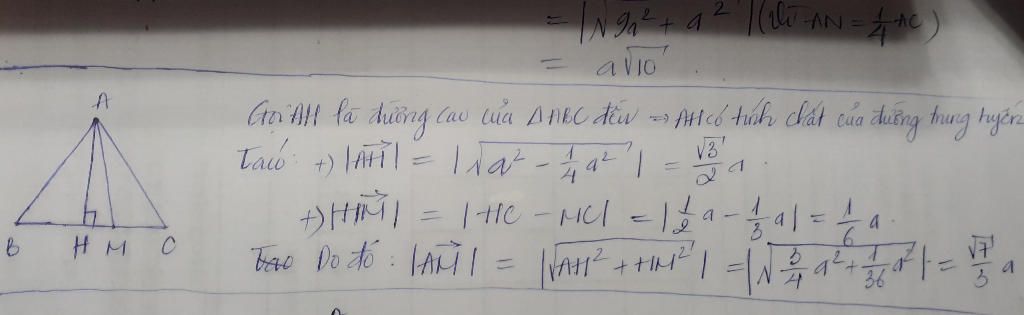 = |√(9a² + a²)| (Vì AN = 1/4 AC)
= a√10
A
B H M C
Gọi AH là đường cao của ΔABC đều ⇒ AH có tính chất của đường trung tuyến
Ta có: +) |AH→| = |√(a² - 1/4 a²)| = √3/2 a.
+) |HM→| = |HC - MC| = |1/2 a - 1/3 a| = 1/6 a.
Do đó: |AM→| = |√(AH² + HM²)| = |√(3/4 a² + 1/36 a²)| = √7/3 a